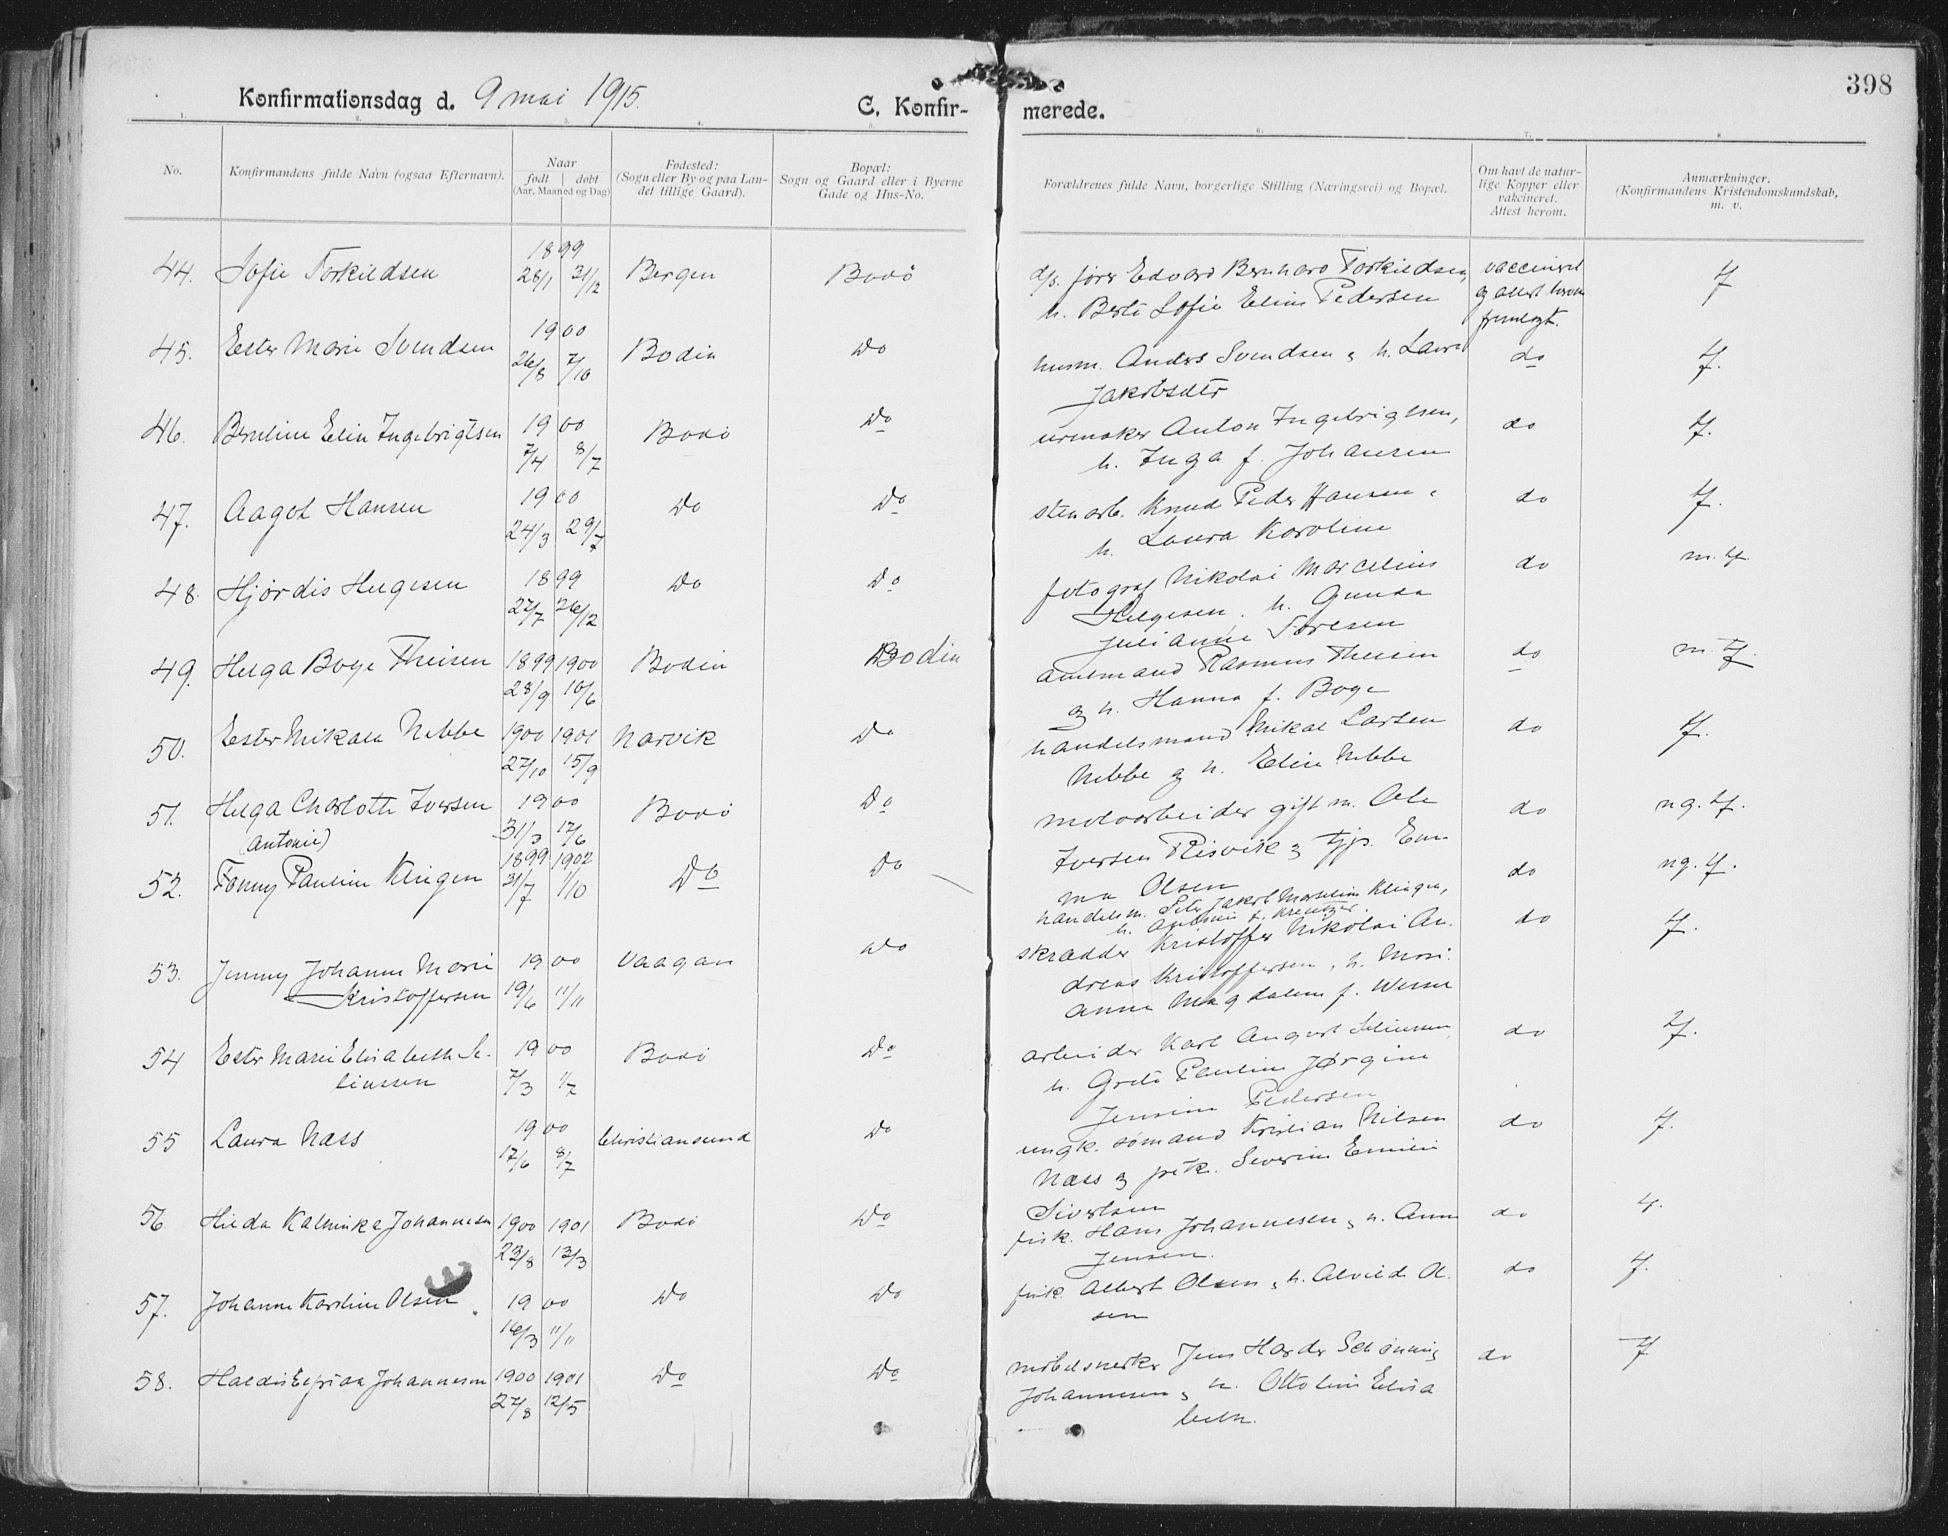 398
Konfirmationsdag d. 9 mai 1915.
C. Konfir-
merede.
1. 2. 3. 4. 5. 6. 7. 8.
No.
Konfirmandens fulde Navn (ogsaa Efternavn).
Naar
født | døbt
(Aar, Maaned og Dag)
Fødested:
(Sogn eller By og paa Lan-
det tillige Gaard).
Bopæl:
Sogn og Gaard eller i Byerne
Gade og Hus-No.
Forældrenes fulde Navn, borgerlige Stilling (Næringsvei) og Bopæl.
Om havt de natur-
lige Kopper eller
vakcineret.
Attest herom.
Anmærkninger.
(Konfirmandens Kristendomskundskab,
m. v.
44. Sofie Torkildsen
1899
28/1 31/12
Bergen
Bodö
d/s. fører Edvard Bernhard Torkildsen,
h. Berte Sofie Eline Pedersen
vaccineret
og attest herom
fremlagt.
45. Ester Marie Svendsen
1900
26/8 7/10
Bodin
Do
husm. Anders Svendsen & h. Laura
Jakobsdtr
do
46. Bernline Elin Ingebrigtsen
1900
7/4 8/7
Bodö
Do
urmaker Anton Ingebrigtsen,
h. Inga f. Johansen
do
47. Aagot Hansen
1900
24/3 29/7
Do
Do
stenarb. Knud Peder Hansen,
h. Laura Karoline
do
48. Hjørdis Helgesen
1899
27/7 26/12
Do
Do
fotograf Nikolai Marcelius
Helgesen, h. Gunda
Julianne Toresen
do
49. Helga Boye Theisen
1899 1900
28/9 10/6
Bodin
Bodin
Rasmus Theisen
og h. Hanna f. Boye
do
50. Ester Mikala Nebbe
1900 1901
27/10 15/9
Narvik
Do
handelsmand Mikal Larsen
Nebbe og h. Elise Nebbe
do
51. Helga Charlotte Iversen
(Antonie)
1900
31/3 17/6
Bodö
Do
moloarbeider gift m. Ole
Iversen Risvik & Em-
ma Olsen
do
52. Fanny Pauline Klingen
1899 1902
31/7 1/10
Do
Do
handelsm. Jakob Klingen,
h.
do
53. Jenny Johanne Marie
Kristoffersen
1900
19/6 11/11
Vaagan
Do
skrædder Kristoffer Nikolai An-
dreas Kristoffersen, h. Mari-
anne Magdalene f.
do
54 Ester Marie Elisabeth Se-
liussen
1900
7/3 1/7
Bodö
Do
arbeider Karl August Seliussen,
h. Grete Pauline Jørgine
Jensine Pedersen
do
55 Laura Næss
1900
17/6 8/7
Christiansund
Do
ungk. sømand Kristian Nilsen
Næss & pik. Severine Emilie
Sivertsen
do
56. Hilda Kalmika Johannesen
1900 1901
23/8 13/3
Bodö
Do
fisk. Hans Johannesen, & h. Anna
Jensen.
do
57. Johanne Karoline Olsen
1900
16/3 11/11
Do
Do
fisk. Albert Olsen, h. Alvild Ol-
sen
do
58. Haldis Johannesen
1900 1901
27/8 12/5
Do
Do
møbelsnerker Jens Harder Schønning
Johannesen & h. Ottoline Elisa
beth.
do